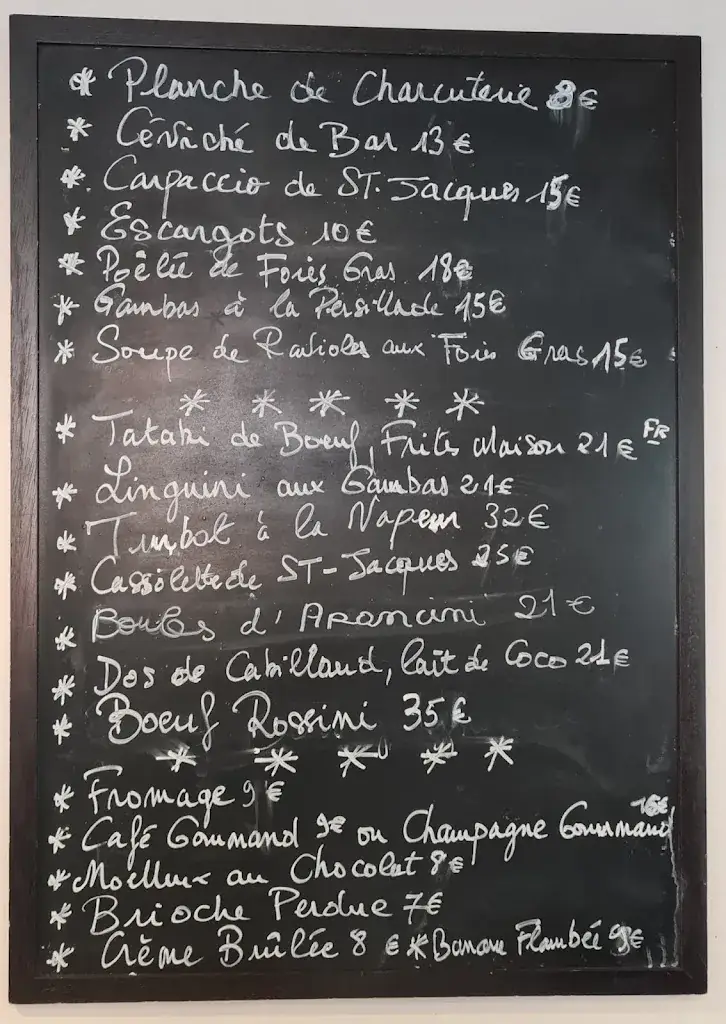 * Planche de Charcuterie 8€
* Céviché de Bar 13€
* Carpaccio de ST. Jacques 15€
* Escargots 10€
* Poêlée de Foies Gras 18€
* Gambas à la Persillade 15€
* Soupe de Ravioles aux Foies Gras 15€
* * * * *
* Tataki de Boeuf, Frites Maison 21€ FR
* Linguini aux Gambas 21€
* Turbot à la Vapeur 32€
* Cassolette de ST-Jacques 25€
* Boules d'Arancini 21€
* Dos de Cabillaud, lait de Coco 21€
* Boeuf Rossini 35€
* * * * *
* Fromage 9€
* Café Gourmand 9€ ou Champagne Gourmand 16€
* Moelleux au Chocolat 8€
* Brioche Perdue 7€
* Crème Brûlée 8€ * Banane Flambée 9€